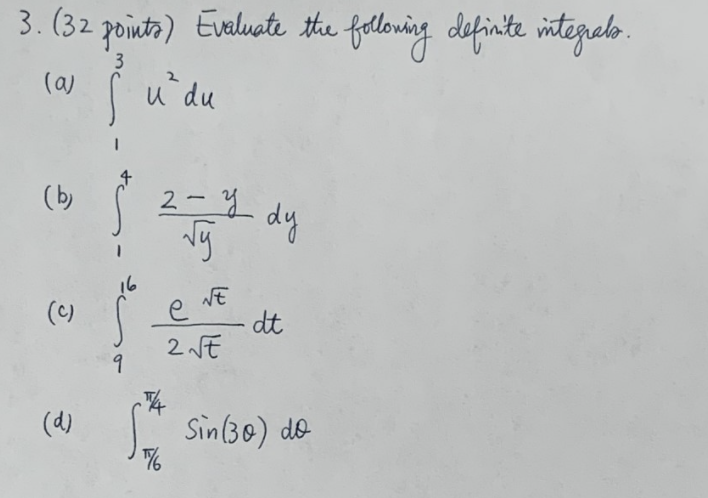 3. (32 points) Evaluate the following definite integrals.
(a) ∫₁³ u² du
(b) ∫₁⁴ (2 - y)/√y dy
(c) ∫₉¹⁶ e^√t/(2√t) dt
(d) ∫_{π/6}^{π/4} Sin(3θ) dθ